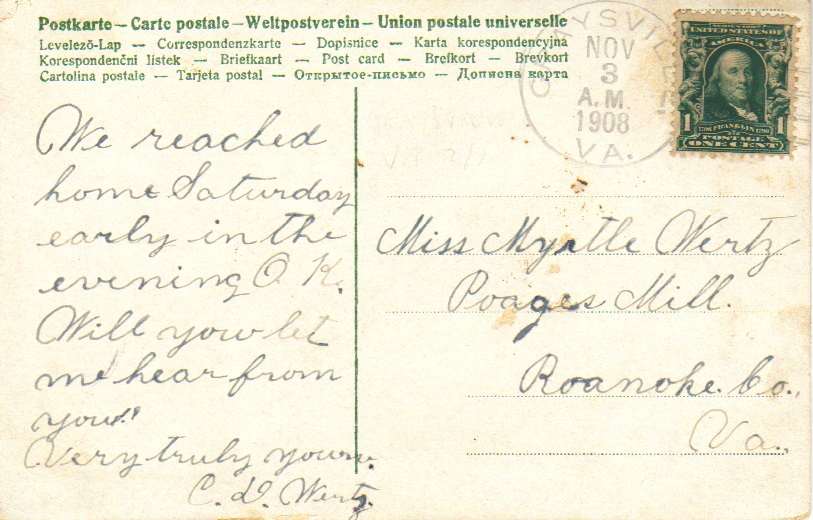 Postkarte — Carte postale — Weltpostverein — Union postale universelle
Levelező-Lap — Correspondenzkarte — Dopisnice — Karta korespondencyjna
Korespondenční lístek — Briefkaart — Post card — Brefkort — Brevkort
Cartolina postale — Tarjeta postal — Открытое-письмо — Дописна карта
We reached
home Saturday
early in the
evening O.K.
Will you let
me hear from
you."
Very truly yours.
C. D. Wertz
NOV
3
A.M.
1908
VA.
UNITED STATES OF
AMERICA
1 1
1706 FRANKLIN 1790
POSTAGE
ONE CENT
Miss Myrtle Wertz
Poages Mill.
Roanoke. Co.,
Va.,